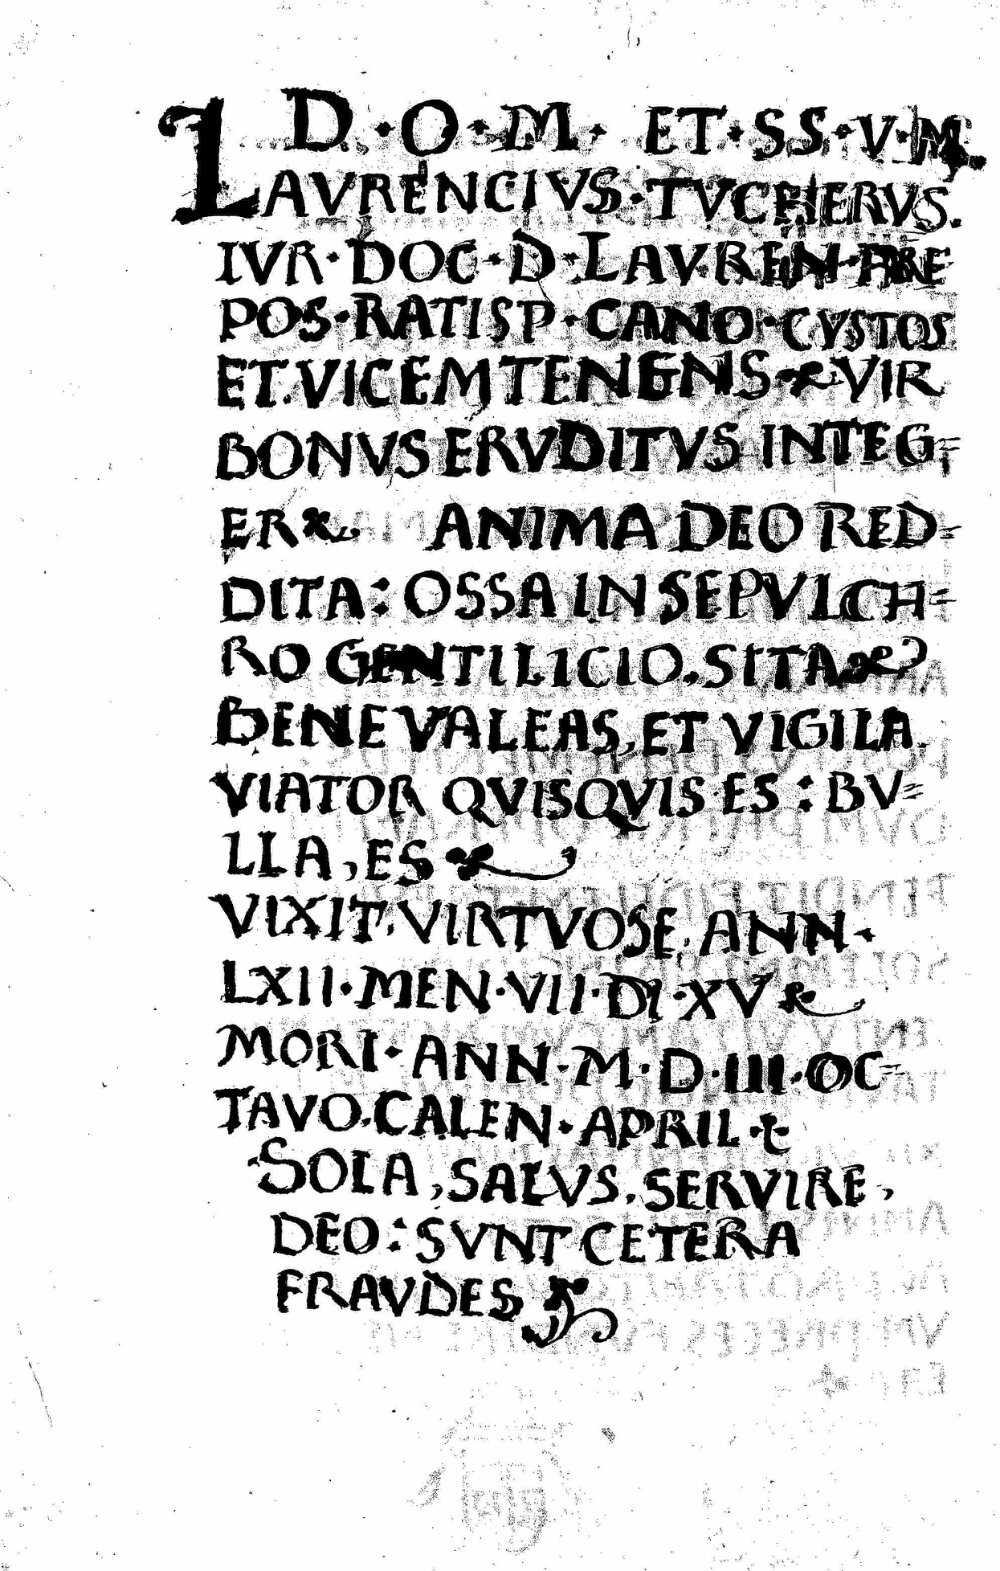 D · O · M · ET · SS · V · M
LAVRENCIVS · TVCHERVS.
IVR · DOC · D · LAVREN · PRE
POS · RATISP · CANO · CVSTOS
ET VICEMTENENS VIR
BONVS ERVDITVS INTEG=
ER ANIMA DEO RED=
DITA : OSSA IN SEPVLCH=
RO GENTILICIO. SITA
BENE VALEAS, ET VIGILA
VIATOR QVISQVIS ES : BV=
LLA, ES
VIXIT. VIRTVOSE. ANN ·
LXII · MEN · VII · DI · XV
MORI · ANN · M · D · III · OC=
TAVO. CALEN · APRIL · t
SOLA, SALVS. SERVIRE,
DEO : SVNT CETERA
FRAVDES